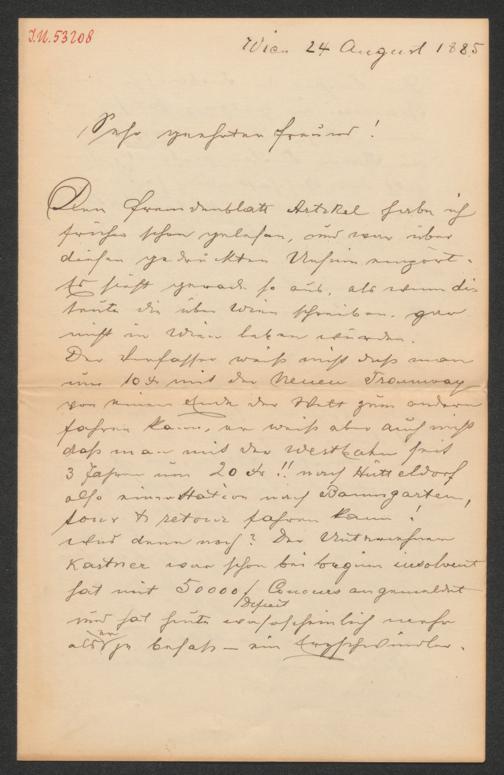 I.N. 53208
Wien 24 August 1885
Sehr geehrter Freund!
Den Fremdenblatt Artikel habe ich
früher schon gelesen, und war über
diesen gedruckten Unsinn empört.
Es sieht gerade so aus, als wenn die
Leute die über Wien schreiben, gar
nicht in Wien leben würden.
Der Verfasser weiß nicht daß man
um 10 Xr mit der Neuen Tramway
von einem Ende der Welt zum andern
fahren kann, er weiß aber auch nicht
daß man mit der Westbahn seit
3 Jahren um 20 Xr!! nach Hütteldorf
also eine Station nach Baumgarten,
tour & retour fahren kann!
Und dann noch? Der Unternehmer
Kastner war schon bei beginn insolvent
hat mit 50000 f Deficit Concurs angemeldet
und hat heute wahrscheinlich mehr
als er je besaß – ein Erzschwindler.